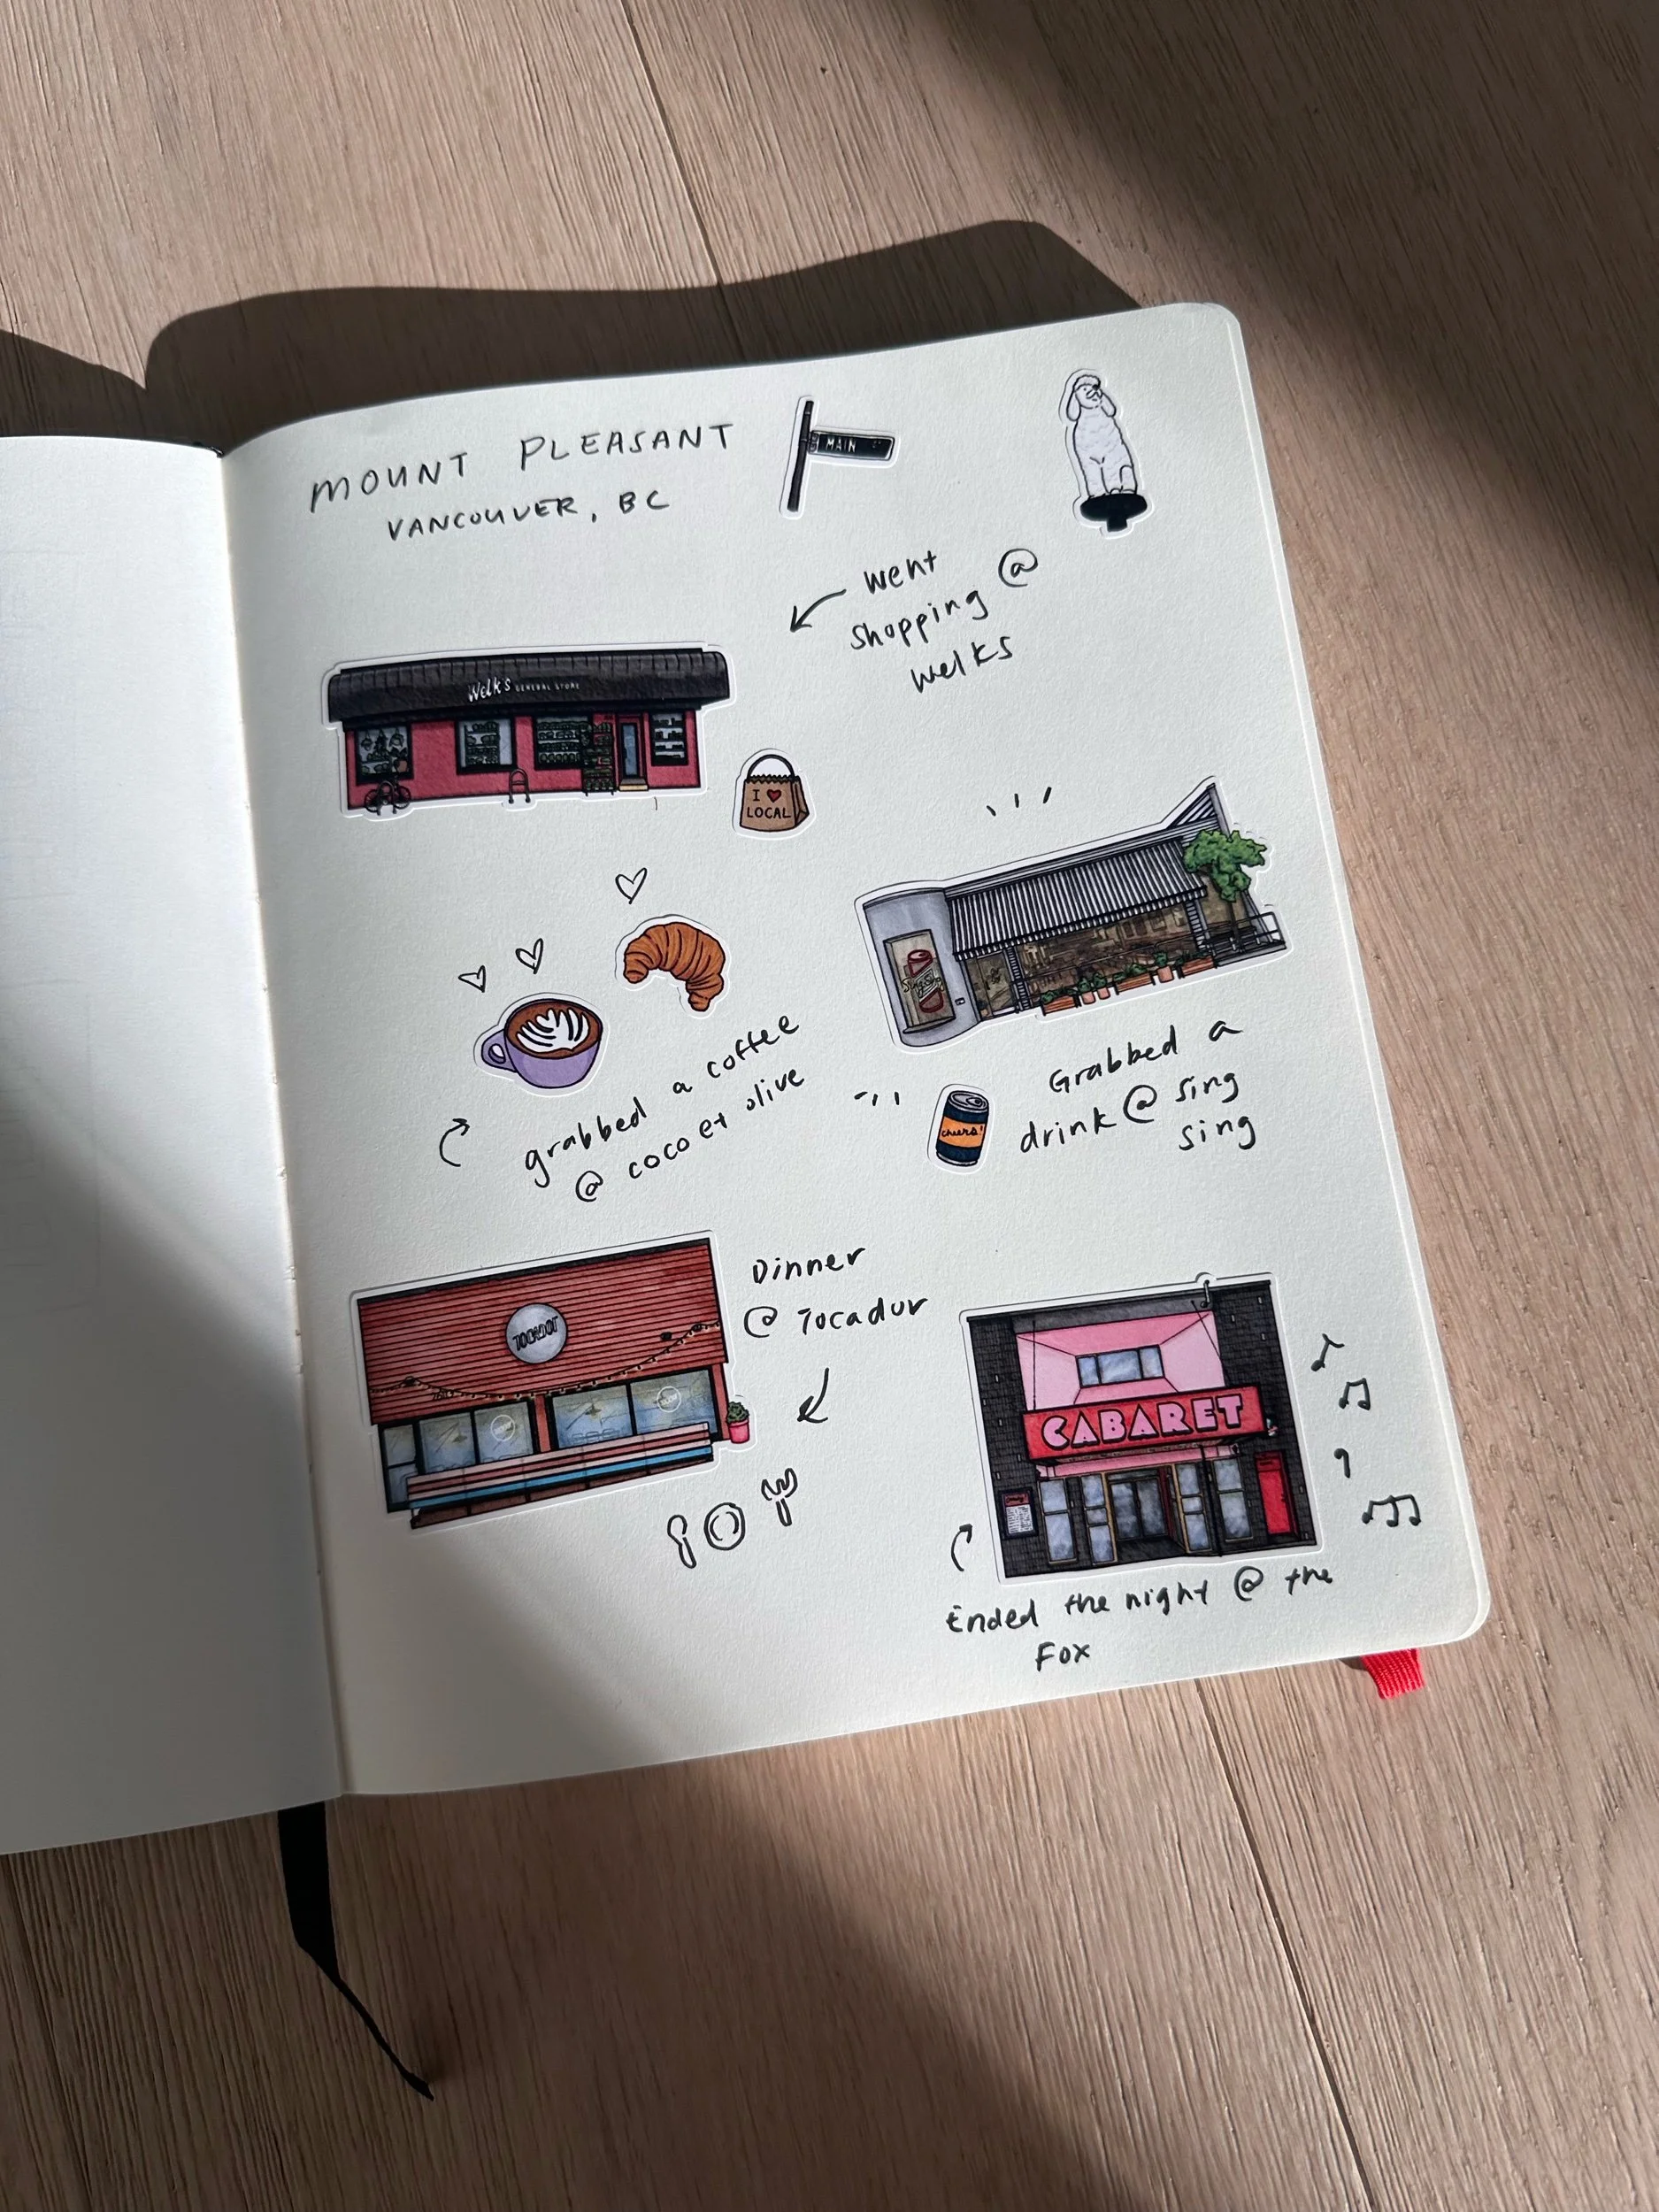 MOUNT PLEASANT
VANCOUVER, BC
MAIN
Went
shopping @
welks
Welk's GENERAL STORE
I ♥
LOCAL
grabbed a coffee
@ coco et olive
Grabbed a
drink @ sing
sing
cheers!
Dinner
@ Tocador
TOCADOR
CABARET
Ended the night @ the
Fox